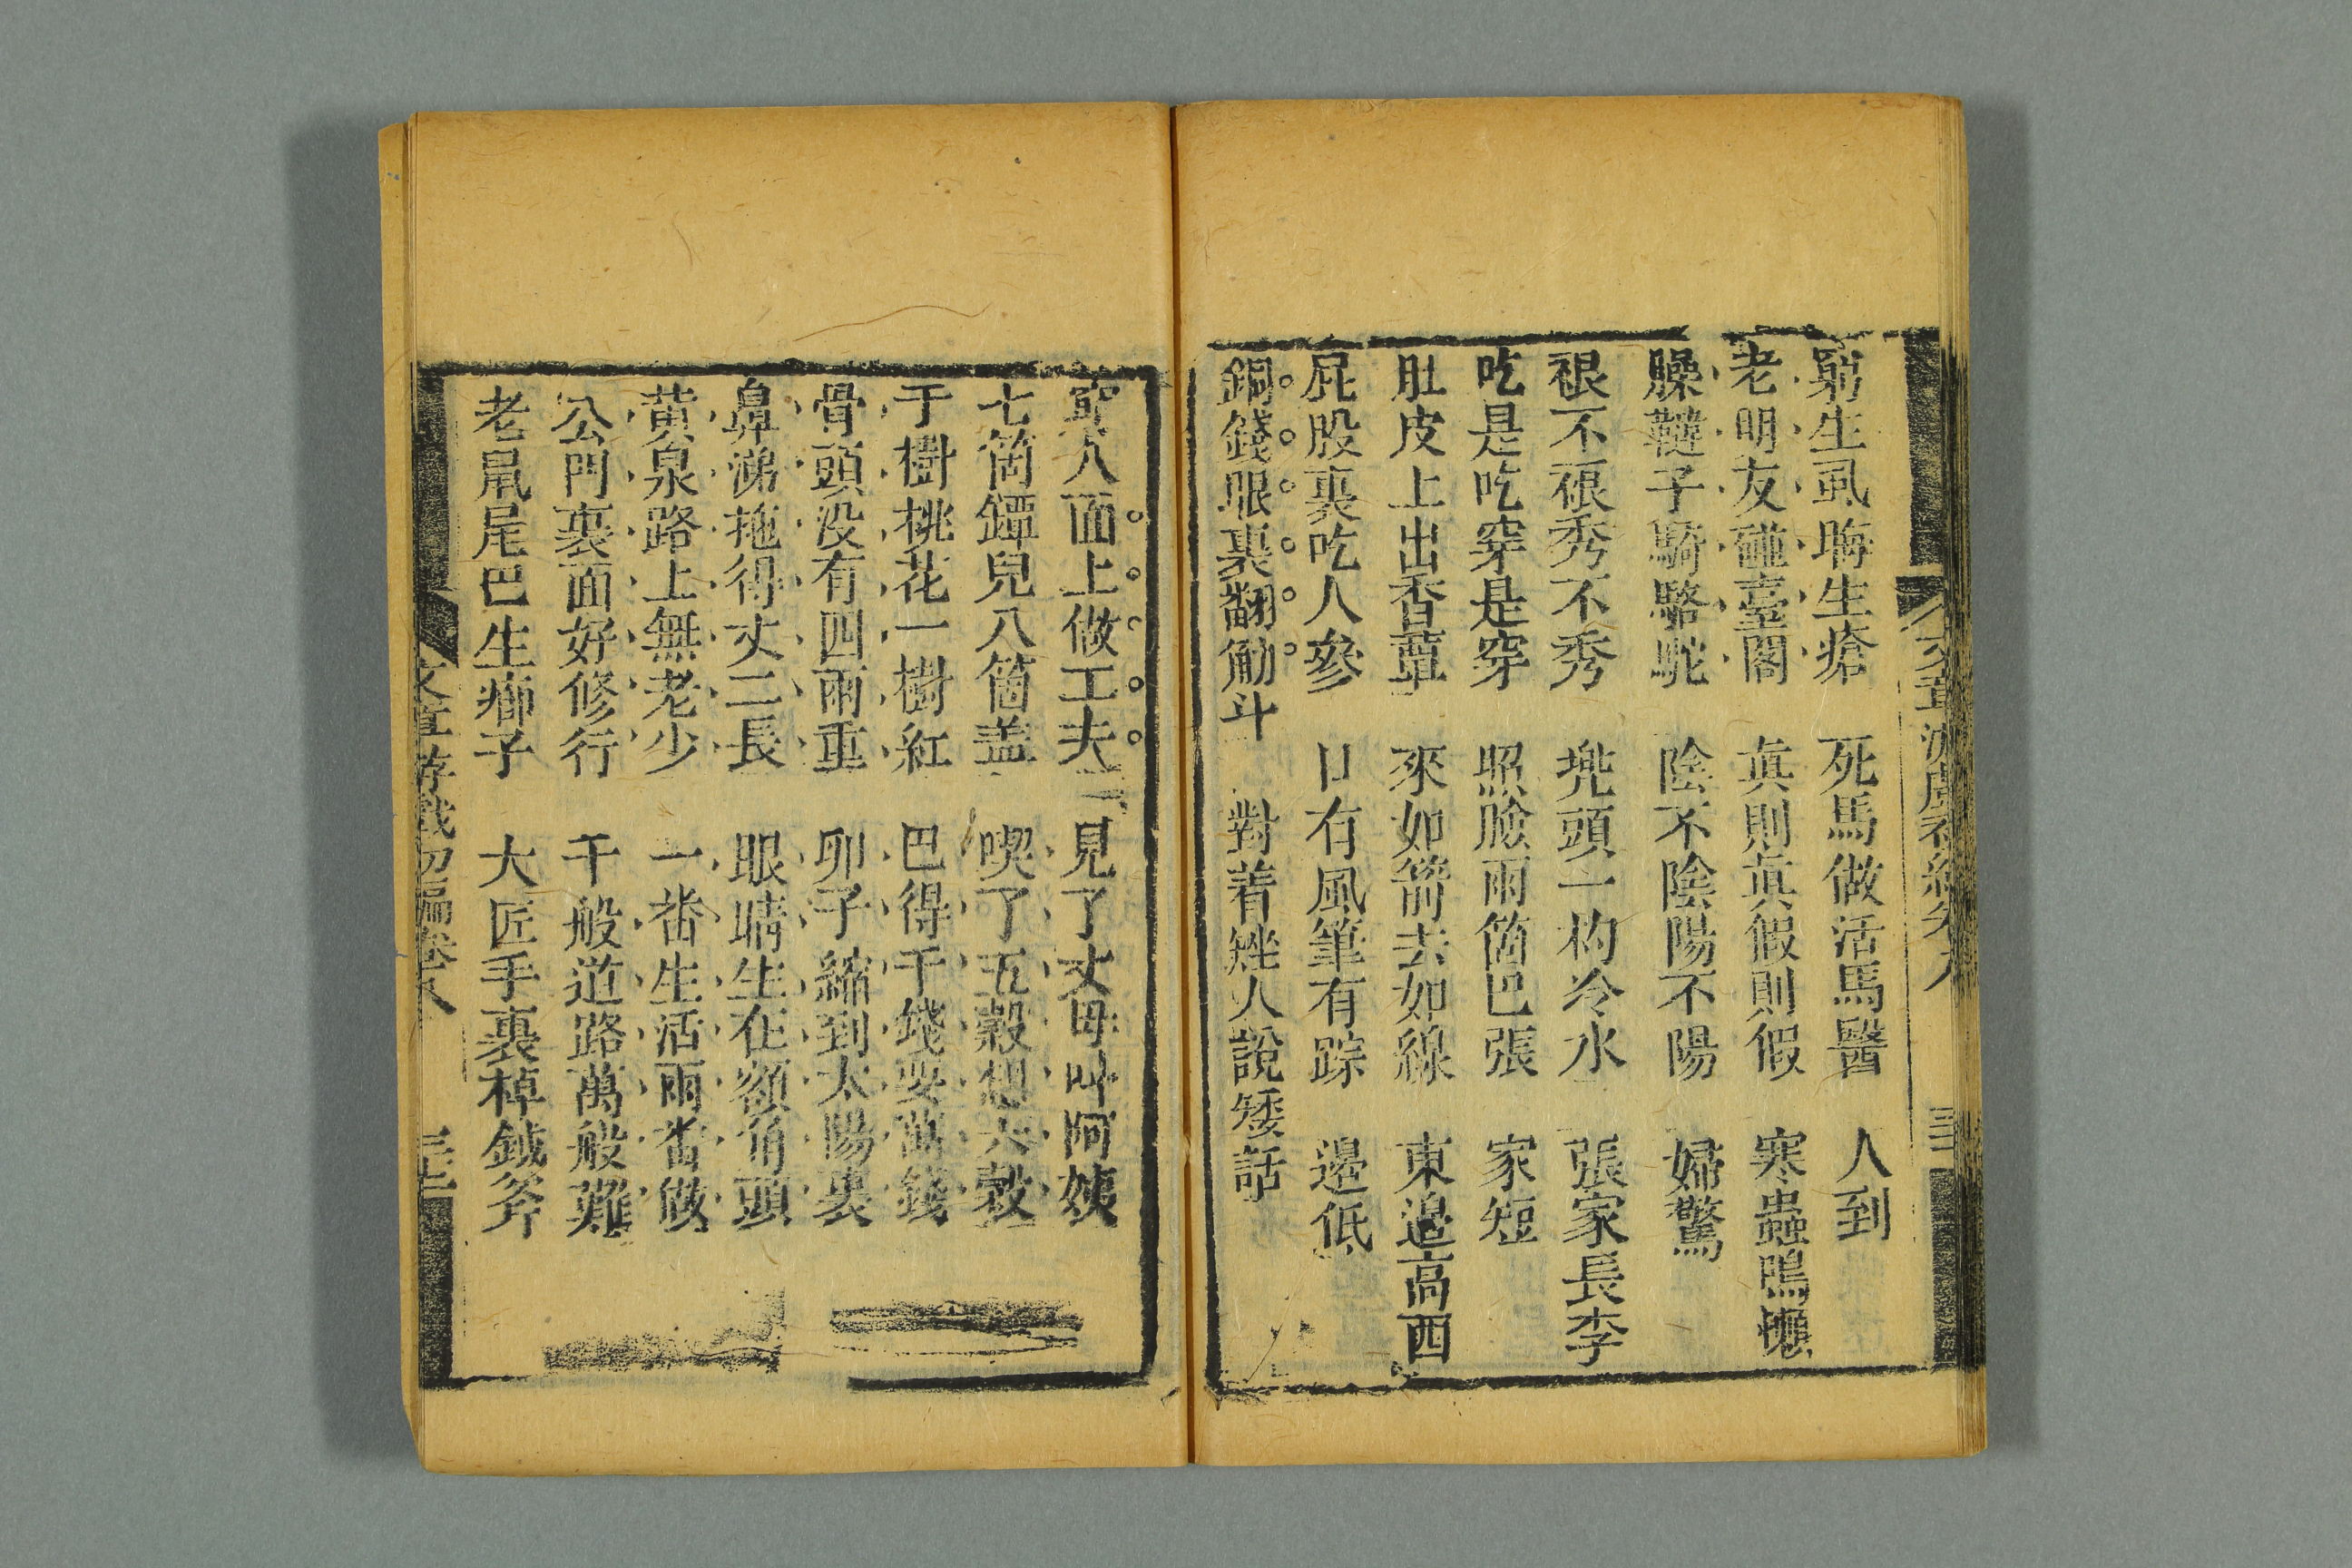 窮生虱晦生瘡　死馬做活馬醫　人到
老明友碰臺閣　眞則眞假則假　寒蟲鴠
臊韃子騎駱駝　陰不陰陽不陽　婦驚
裉不裉秀不秀　兠頭一杓冷水　張家長李
吃是吃穿是穿　照臉兩箇巴張　家短
肚皮上出香蕈　來如箭去如線　東邉高西
屁股裏吃人參　日有風筆有踪　邉低
銅錢眼裏翻觔斗　對着矮人說矮話
窄人面上做工夫　見了丈毋叫阿姨
七箇鐔兒八箇盖　喫了五穀想六穀
于樹桃花一樹紅　巴得千錢要萬錢
骨頭没有四兩重　卵子縮到太陽裏
鼻涕拖得丈二長　眼睛生在額角頭
黄泉路上無老少　一番生活兩番做
公門裏面好修行　千般道路萬般難
老鼠尾巴生癤子　大匠手裏棹鉞斧
文章游戲初編卷八